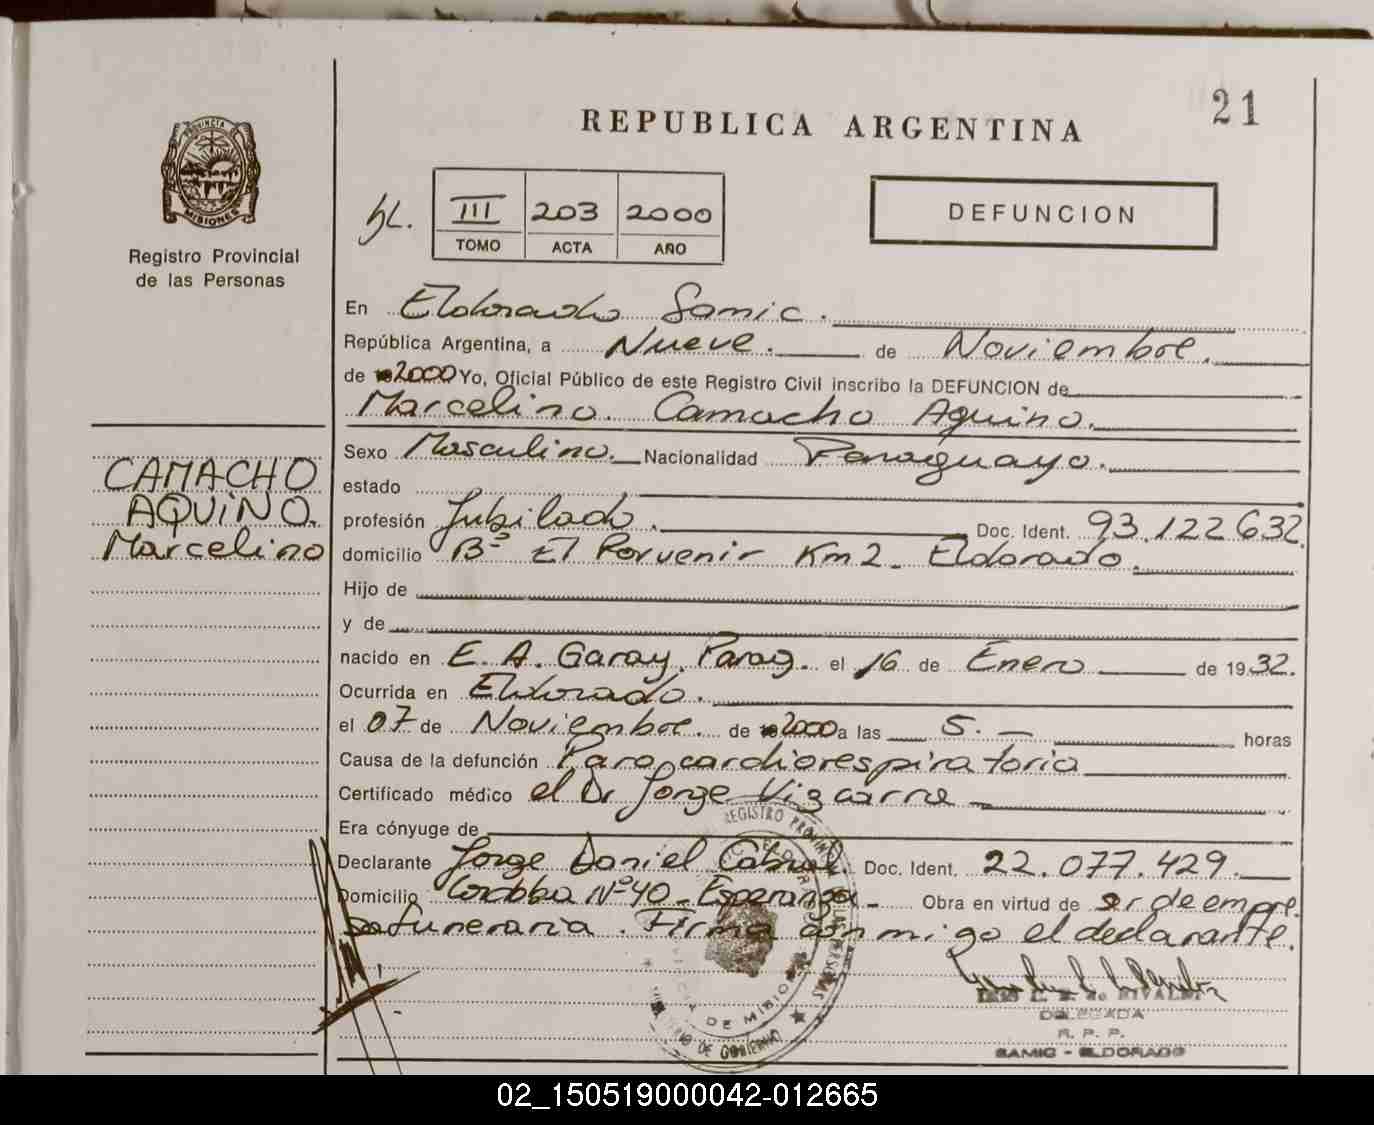 21
REPUBLICA ARGENTINA
PROVINCIA DE
MISIONES
Registro Provincial
de las Personas
III 203 2000
TOMO ACTA AÑO
DEFUNCION
En Eldorado Samic.
República Argentina, a Nueve. de Noviembre.
de 2000 Yo, Oficial Público de este Registro Civil inscribo la DEFUNCION de
Marcelino. Camacho Aquino.
CAMACHO
AQUINO.
Marcelino
Sexo Masculino. Nacionalidad Paraguayo.
estado
profesión Jubilado. Doc. Ident. 93.122632.
domicilio Bº El Porvenir Km 2. Eldorado.
Hijo de
y de
nacido en E. A. Garay, Parag. el 16 de Enero de 1932.
Ocurrida en Eldorado.
el 07 de Noviembre. de 2000 a las 5. — horas
Causa de la defunción Paro cardiorespiratoria
Certificado médico el Dr Jorge Vizcarra
Era cónyuge de
Declarante Jorge Daniel Cabral. Doc. Ident. 22.077.429.
Domicilio Cordoba Nº 40 - Esperanza - Obra en virtud de ser de empre
sa funeraria. Firma conmigo el declarante.
REGISTRO PROVINCIAL DE LAS PERSONAS
DE MISIONES
MINISTERIO DE GOBIERNO
de RIVALDI
DELEGADA
R. P. P.
SAMIC - ELDORADO
02_150519000042-012665